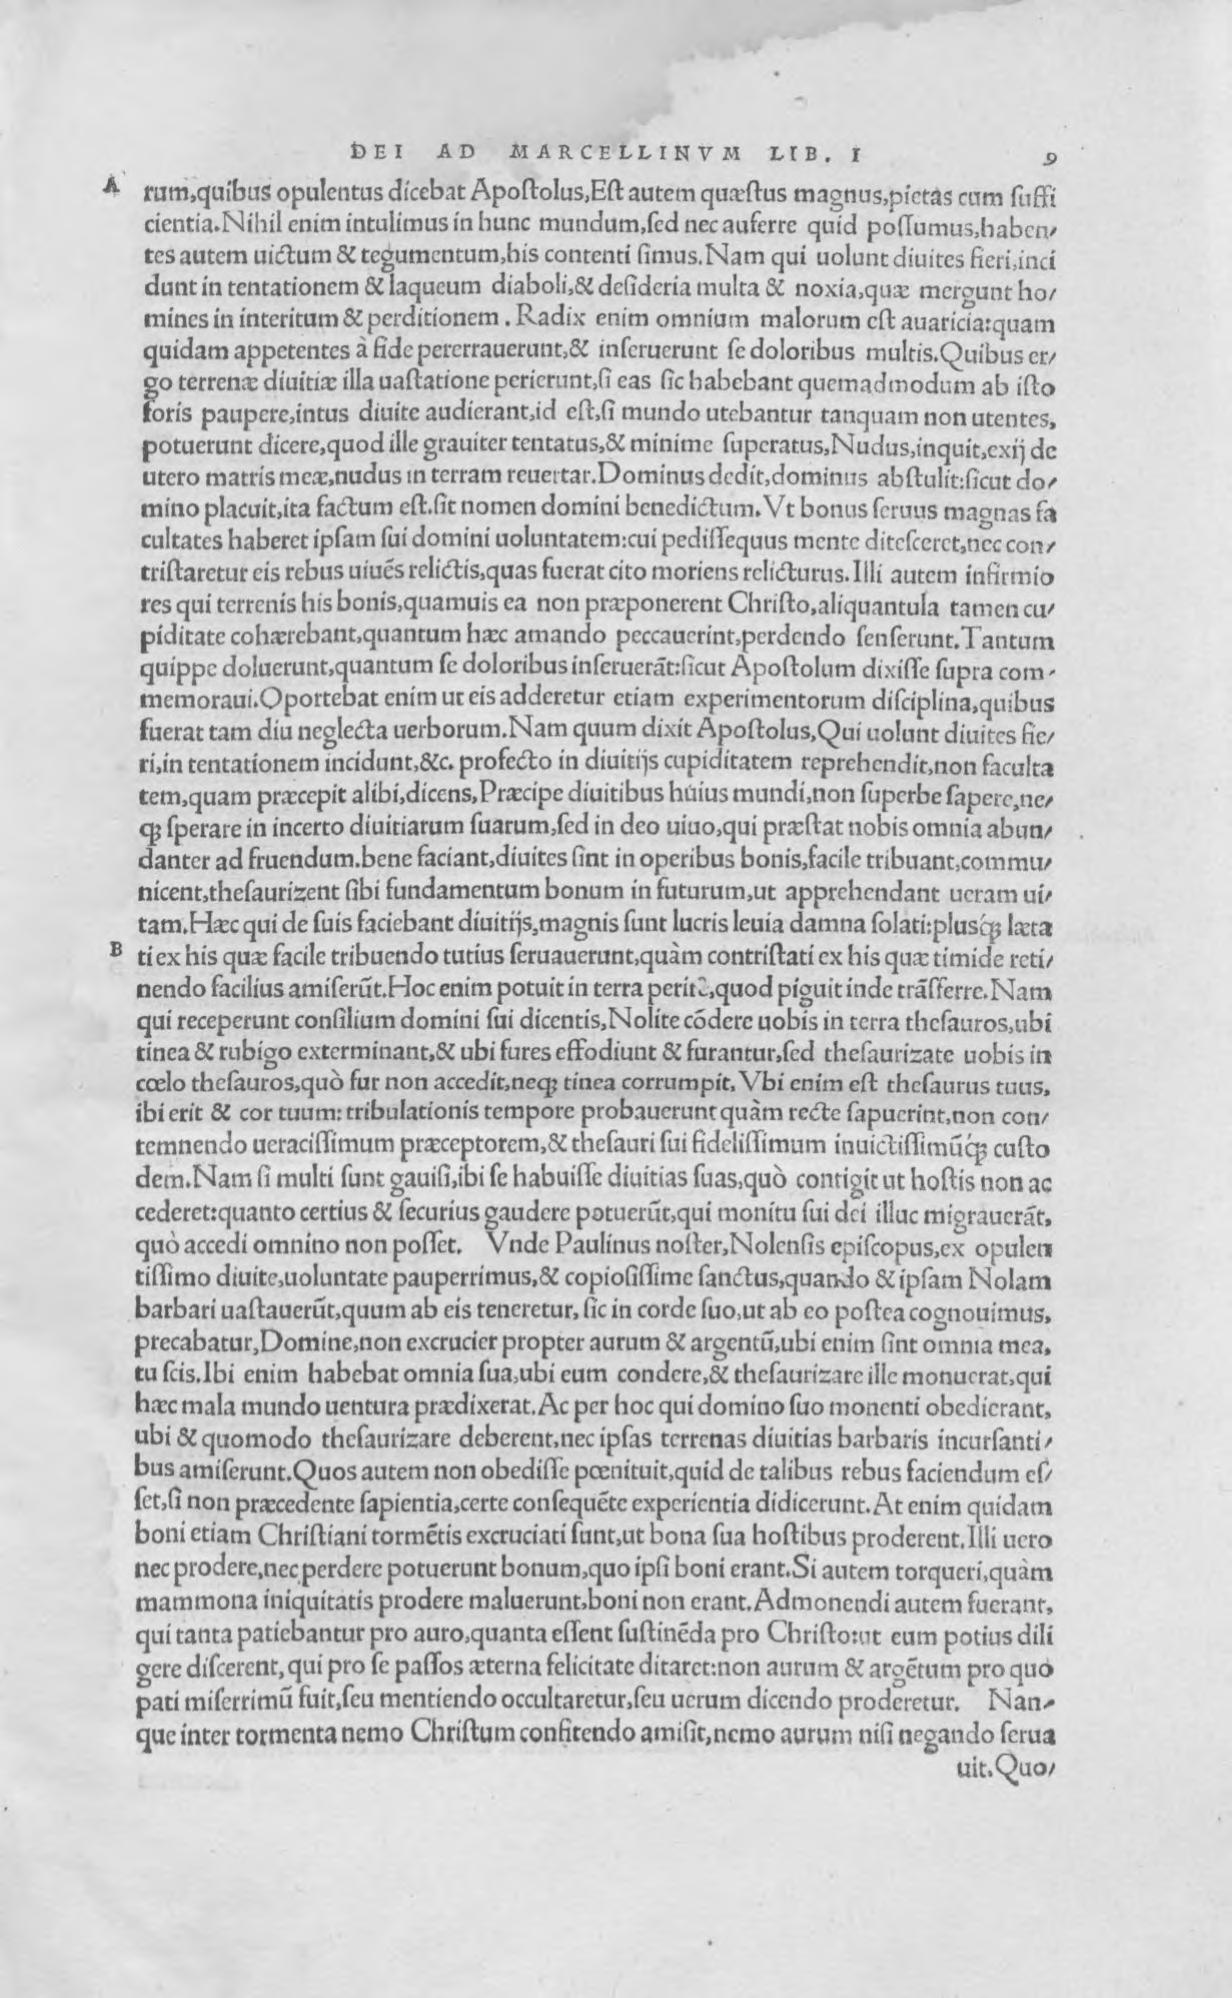 DEI AD MARCELLINVM LIB. I 9
A rum,quibus opulentus dicebat Apoſtolus,Eſt autem quæſtus magnus,pietas cum ſuffi
cientia.Nihil enim intulimus in hunc mundum,ſed nec auferre quid poſſumus,haben/
tes autem uictum & tegumentum,his contenti ſimus.Nam qui uolunt diuites fieri,inci
dunt in tentationem & laqueum diaboli,& deſideria multa & noxia,quæ mergunt ho/
mines in interitum & perditionem. Radix enim omnium malorum eſt auaricia:quam
quidam appetentes à fide pererrauerunt,& inſeruerunt ſe doloribus multis.Quibus er/
go terrenæ diuitiæ illa uaſtatione perierunt,ſi eas ſic habebant quemadmodum ab iſto
foris paupere,intus diuite audierant,id eſt,ſi mundo utebantur tanquam non utentes,
potuerunt dicere,quod ille grauiter tentatus,& minime ſuperatus,Nudus,inquit,exij de
utero matris meæ,nudus in terram reuertar.Dominus dedit,dominus abſtulit:ſicut do/
mino placuit,ita factum eſt.ſit nomen domini benedictum.Vt bonus ſeruus magnas fa
cultates haberet ipſam ſui domini uoluntatem:cui pediſſequus mente diteſceret,nec con/
triſtaretur eis rebus uiuẽs relictis,quas fuerat cito moriens relicturus.Illi autem infirmio
res qui terrenis his bonis,quamuis ea non præponerent Chriſto,aliquantula tamen cu/
piditate cohærebant,quantum hæc amando peccauerint,perdendo ſenſerunt.Tantum
quippe doluerunt,quantum ſe doloribus inſeruerãt:ſicut Apoſtolum dixiſſe ſupra com/
memoraui.Oportebat enim ut eis adderetur etiam experimentorum diſciplina,quibus
fuerat tam diu neglecta uerborum.Nam quum dixit Apoſtolus,Qui uolunt diuites fie/
ri,in tentationem incidunt,&c. profecto in diuitijs cupiditatem reprehendit,non faculta
tem,quam præcepit alibi,dicens,Præcipe diuitibus huius mundi,non ſuperbe ſapere,ne/
qꝫ ſperare in incerto diuitiarum ſuarum,ſed in deo uiuo,qui præſtat nobis omnia abun/
danter ad fruendum.bene faciant,diuites ſint in operibus bonis,facile tribuant,commu/
nicent,theſaurizent ſibi fundamentum bonum in futurum,ut apprehendant ueram ui/
tam.Hæc qui de ſuis faciebant diuitijs,magnis ſunt lucris leuia damna ſolati:plusq́ꝫ læta
B ti ex his quæ facile tribuendo tutius ſeruauerunt,quàm contriſtati ex his quæ timide reti/
nendo facilius amiſerũt.Hoc enim potuit in terra perire,quod piguit inde trãſferre.Nam
qui receperunt conſilium domini ſui dicentis,Nolite cõdere uobis in terra theſauros,ubi
tinea & rubigo exterminant,& ubi fures effodiunt & furantur,ſed theſaurizate uobis in
cœlo theſauros,quò fur non accedit,neqꝫ tinea corrumpit,Vbi enim eſt theſaurus tuus,
ibi erit & cor tuum: tribulationis tempore probauerunt quàm recte ſapuerint,non con/
temnendo ueraciſſimum præceptorem,& theſauri ſui fideliſſimum inuictiſſimũq́ꝫ cuſto
dem.Nam ſi multi ſunt gauiſi,ibi ſe habuiſſe diuitias ſuas,quò contigit ut hoſtis non ac
cederet:quanto certius & ſecurius gaudere potuerũt,qui monitu ſui dei illuc migrauerãt,
quò accedi omnino non poſſet. Vnde Paulinus noſter,Nolenſis epiſcopus,ex opulen
tiſſimo diuite,uoluntate pauperrimus,& copioſiſſime ſanctus,quando & ipſam Nolam
barbari uaſtauerũt,quum ab eis teneretur, ſic in corde ſuo,ut ab eo poſtea cognouimus,
precabatur,Domine,non excrucier propter aurum & argentũ,ubi enim ſint omnia mea,
tu ſcis.Ibi enim habebat omnia ſua,ubi eum condere,& theſaurizare ille monuerat,qui
hæc mala mundo uentura prædixerat.Ac per hoc qui domino ſuo monenti obedierant,
ubi & quomodo theſaurizare deberent,nec ipſas terrenas diuitias barbaris incurſanti/
bus amiſerunt.Quos autem non obediſſe pœnituit,quid de talibus rebus faciendum eſ/
ſet,ſi non præcedente ſapientia,certe conſequẽte experientia didicerunt.At enim quidam
boni etiam Chriſtiani tormẽtis excruciati ſunt,ut bona ſua hoſtibus proderent.Illi uero
nec prodere,nec perdere potuerunt bonum,quo ipſi boni erant.Si autem torqueri,quàm
mammona iniquitatis prodere maluerunt,boni non erant.Admonendi autem fuerant,
qui tanta patiebantur pro auro,quanta eſſent ſuſtinẽda pro Chriſto:ut eum potius dili
gere diſcerent, qui pro ſe paſſos æterna felicitate ditaret:non aurum & argẽtum pro quo
pati miſerrimũ fuit,ſeu mentiendo occultaretur,ſeu uerum dicendo proderetur. Nan/
que inter tormenta nemo Chriſtum confitendo amiſit,nemo aurum niſi negando ſerua
uit.Quo/